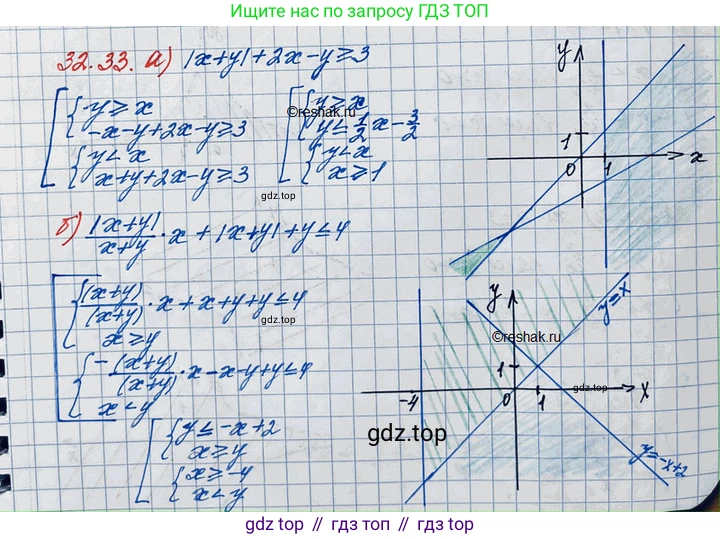 Ищите нас по запросу ГДЗ ТОП
32.33. а) |x+y|+2x-y≥3
y≥x
-x-y+2x-y≥3
y<x
x+y+2x-y≥3
y≥x
y≤1/2x-3/2
y<x
x≥1
©reshak.ru
gdz.top
y
1
0
1
x
б) |x+y|/x+y·x+|x+y|+y≤4
(x+y)/(x+y)·x+x+y+y≤4
x≥y
-(x+y)/(x+y)·x-x-y+y≤4
x<y
gdz.top
y≤-x+2
x≥y
x≥-4
x<y
y
y=x
©reshak.ru
1
-4
0
1
x
gdz.top
gdz.top
y=-x+2
gdz top // гдз топ // gdz top